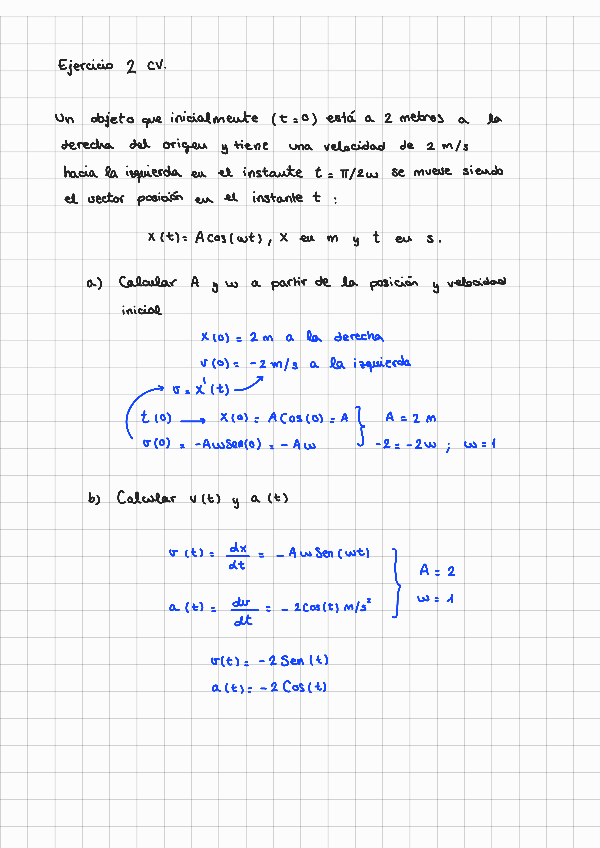 Ejercicio 2 CV.
Un objeto que inicialmente (t=0) está a 2 metros a la
derecha del origen y tiene una velocidad de 2 m/s
hacia la izquierda en el instante t = π/2ω se mueve siendo
el vector posición en el instante t :
X(t)= Acos(ωt), X en m y t en s.
a) Calcular A y ω a partir de la posición y velocidad
inicial
X(0) = 2 m a la derecha
v(0) = -2 m/s a la izquierda
v = x'(t)
t(0) → X(0) = A Cos(0) = A } A = 2 m
v(0) = -AωSen(0) = -Aω } -2 = -2ω ; ω = 1
b) Calcular v(t) y a(t)
v(t) = dx/dt = - A ω Sen(ωt)
a(t) = dv/dt = - 2Cos(t) m/s²
A = 2
ω = 1
v(t) = -2 Sen(t)
a(t) = -2 Cos(t)